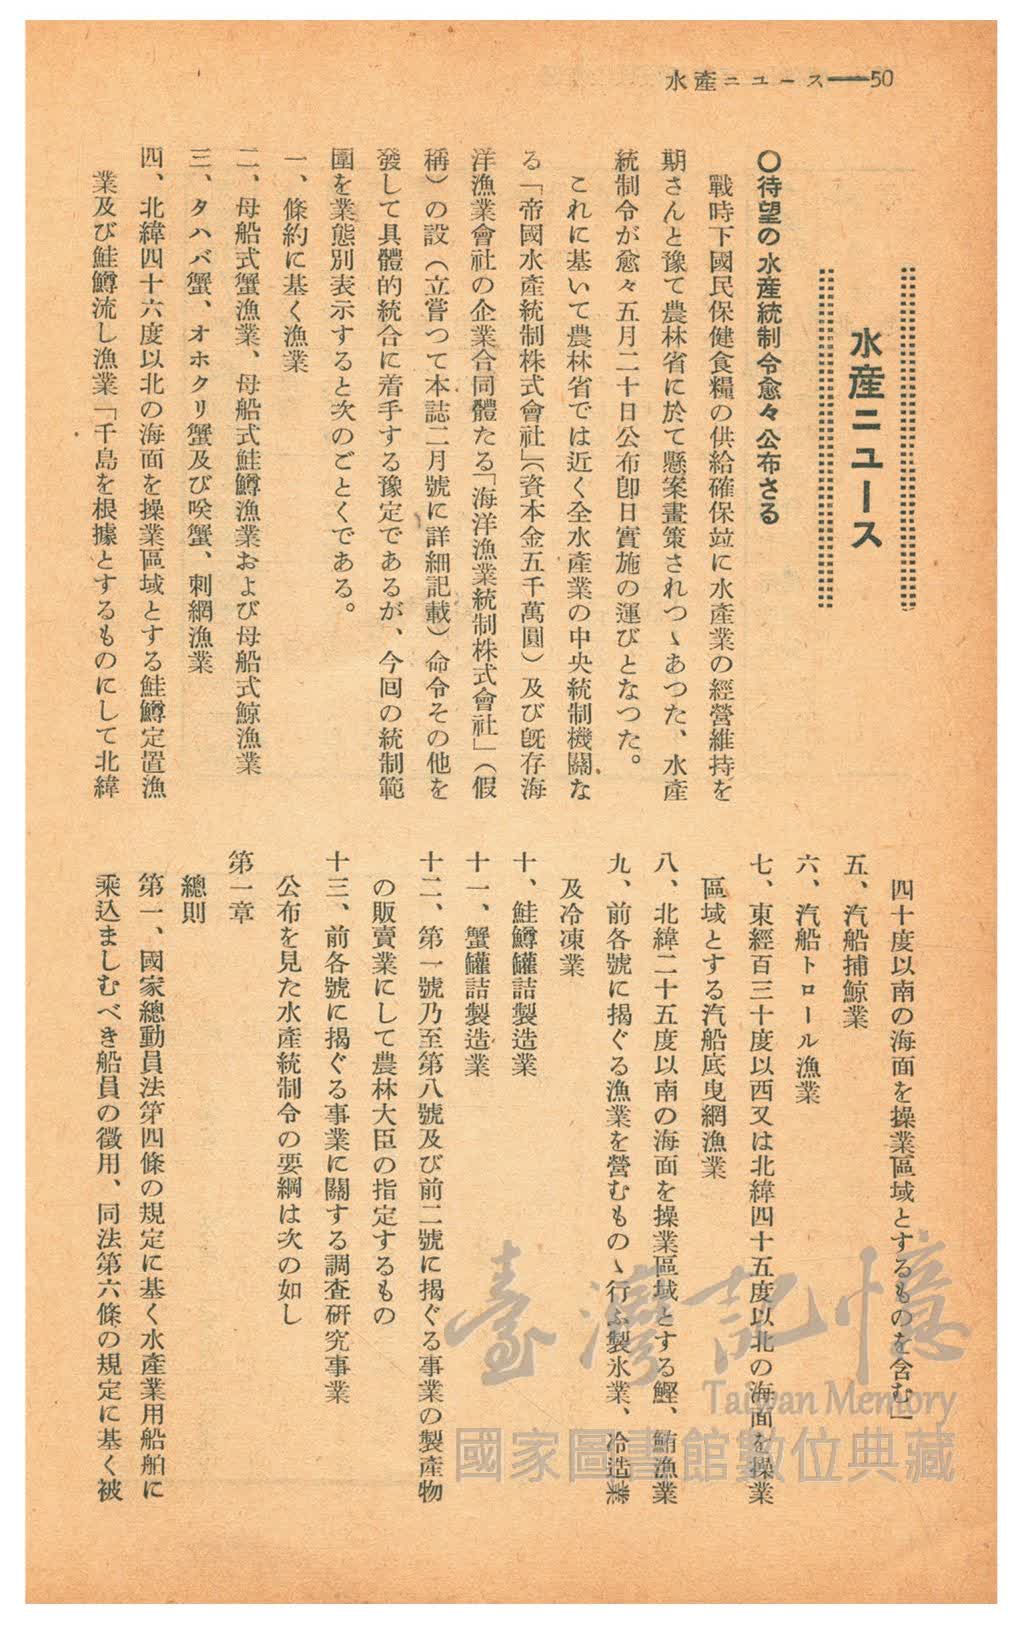 水產ニュース━━50
水產ニュース
〇待望の水産統制令愈々公布さる
戰時下國民保健食糧の供給確保竝に水產業の經營維持を
期さんと豫て農林省に於て懸案畫策されつゝあつた、水產
統制令が愈々五月二十日公布卽日實施の運びとなつた。
これに基いて農林省では近く全水產業の中央統制機關な
る「帝國水產統制株式會社」(資本金五千萬圓)及び旣存海
洋漁業會社の企業合同體たる「海洋漁業統制株式會社」(假
稱)の設(立嘗つて本誌二月號に詳細記載)命令その他を
發して具體的統合に着手する豫定であるが、今囘の統制範
圍を業態別表示すると次のごとくである。
一、條約に基く漁業
二、母船式蟹漁業、母船式鮭鱒漁業および母船式鯨漁業
三、タハバ蟹、オホクリ蟹及び咲蟹、刺網漁業
四、北緯四十六度以北の海面を操業區域とする鮭鱒定置漁
業及び鮭鱒流し漁業「千島を根據とするものにして北緯
四十度以南の海面を操業區域とするものを含む」
五、汽船捕鯨業
六、汽船トロール漁業
七、東經百三十度以西又は北緯四十五度以北の海面を操業
區域とする汽船底曳網漁業
八、北緯二十五度以南の海面を操業區域とする鰹、鮪漁業
九、前各號に揭ぐる漁業を營むものゝ行ふ製氷業、冷造業
及冷凍業
十、鮭鱒罐詰製造業
十一、蟹罐詰製造業
十二、第一號乃至第八號及び前二號に揭ぐる事業の製產物
の販賣業にして農林大臣の指定するもの
十三、前各號に揭ぐる事業に關する調査硏究事業
公布を見た水產統制令の要綱は次の如し
第一章
總則
第一、國家總動員法第四條の規定に基く水產業用船舶に
乘込ましむべき船員の徵用、同法第六條の規定に基く被
臺灣記憶
Taiwan Memory
國家圖書館數位典藏